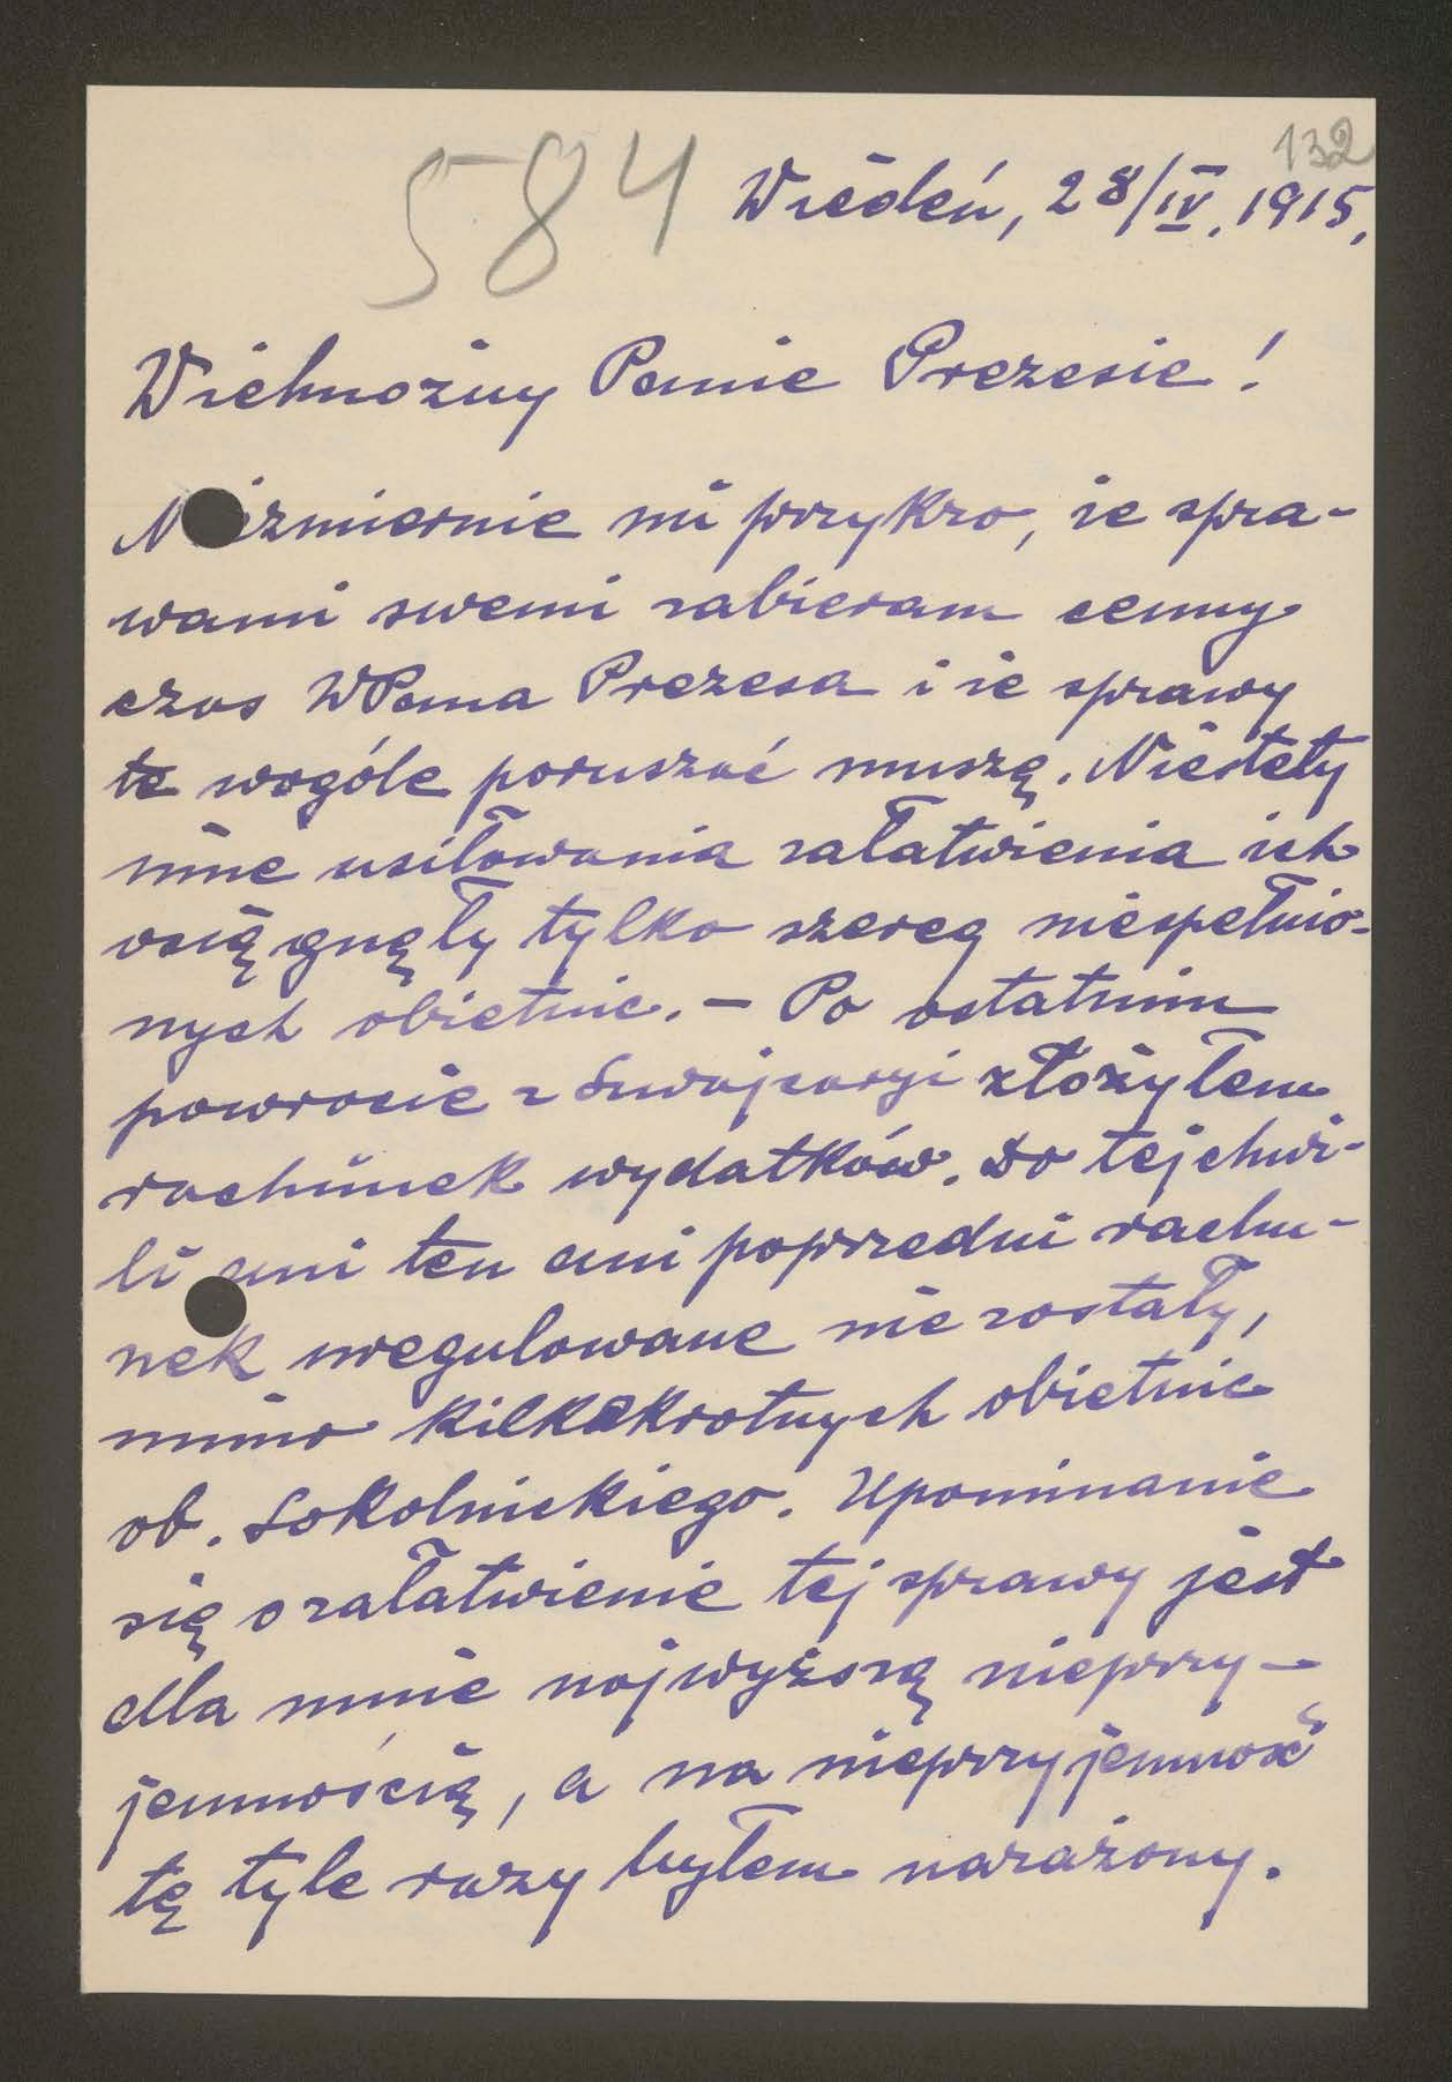 132
584
Wiedeń, 28/IV. 1915.
Wielmożny Panie Prezesie!
Niezmiernie mi przykro, że spra-
wami swemi zabieram cenny
czas WPana Prezesa i że sprawy
te wogóle poruszać muszę. Niestety
inne usiłowania załatwienia ich
osiągnęły tylko szereg niespełnio-
nych obietnic. – Po ostatnim
powrocie z Szwajcaryi złożyłem
rachunek wydatków. Do tej chwi-
li ani ten ani poprzedni rachu-
nek uregulowane nie zostały,
mimo kilkakrotnych obietnic
ob. Sokolnickiego. Upominanie
się o załatwienie tej sprawy jest
dla mnie najwyższą nieprzy-
jemnością, a na nieprzyjemność
tę tyle razy byłem narażony.